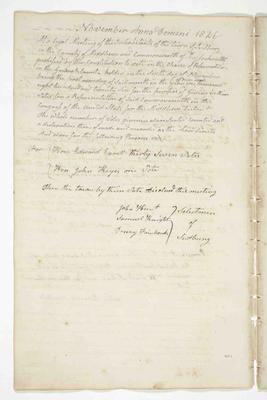 November Anno Domini 1826
At a legal Meeting of the Inhabitants of the Town of Sudbury
in the County of Middlesex and Commonwealth of Massachusetts
qualified by the Constitution to vote in the choice of Representatives
in the General Court holden on the Sixth day of November
being the first Monday of said month in the year
eight hundred and twenty six for the purpose of giving in their
votes for a Representative of said Commonwealth in the
Congress of the United States for the Middlesex District
The whole number of votes given in were sorted counted and
a declaration thereof made and recorded as the law directs
and were for the following Persons viz
For Hon Edward Everett thirty Seven Votes
Hon John Keyes one Vote
Then the town by their vote dissolved this meeting
John Hunt
Samuel Knight
Drury Fairbank
Selectmen
of
Sudbury